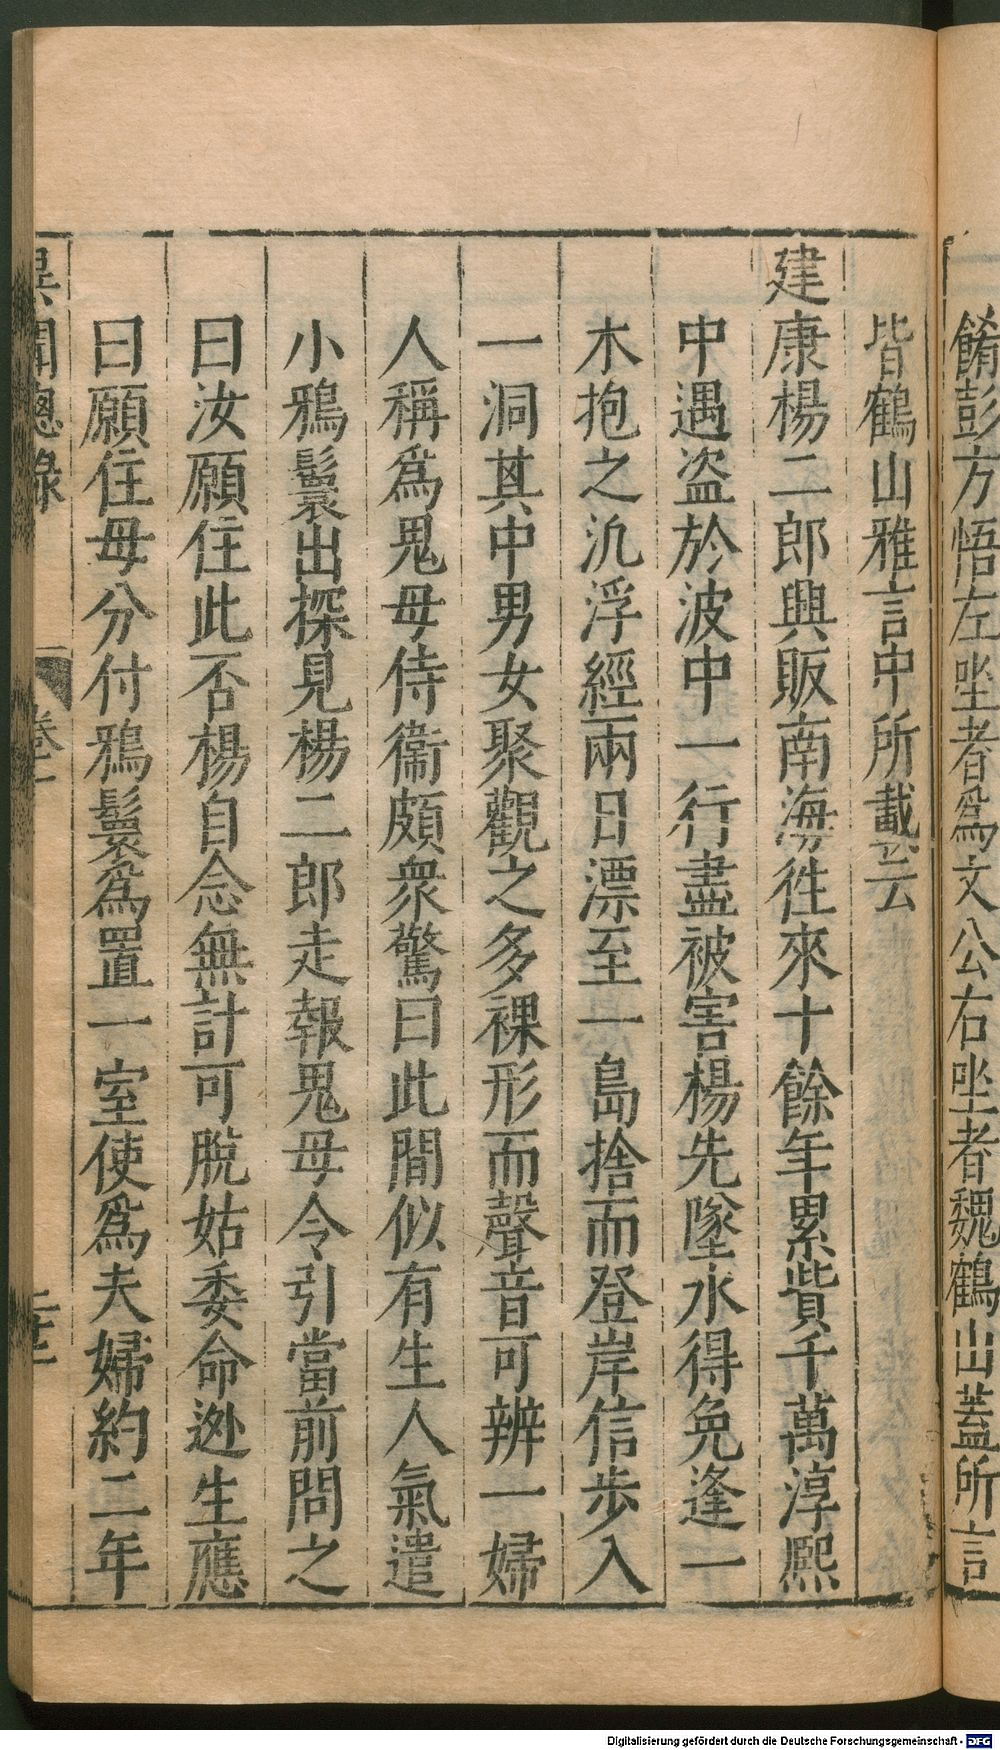 餚彭方悟左坐者爲文公右坐者魏鶴山蓋所言
皆鶴山雅言中所載云
建康楊二郎興販南海徃來十餘年累貲千萬淳熙
中遇盗於波中一行盡被害楊先墜水得免逢一
木抱之汎浮經兩日漂至一島捨而登岸信步入
一洞其中男女聚觀之多裸形而聲音可辨一婦
人稱爲鬼母侍衞頗衆驚曰此間似有生人氣遣
小鴉鬟出探見楊二郎走報鬼母令引當前問之
曰汝願住此否楊自念無計可脫姑委命逃生應
曰願住母分付鴉鬟爲置一室使爲夫婦約二年
異聞總錄
卷一
Digitalisierung gefördert durch die Deutsche Forschungsgemeinschaft - DFG